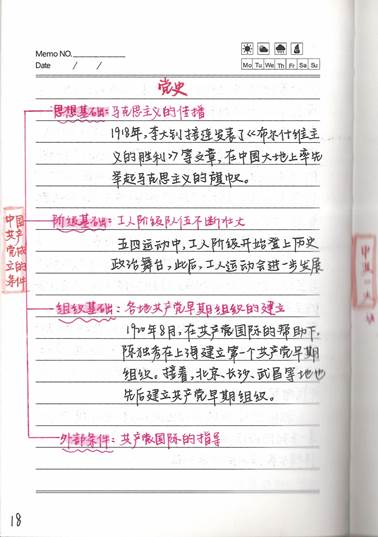 Memo NO.
Date / /
Mo Tu We Th Fr Sa Su
党史
思想基础:马克思主义的传播
1918年,李大钊接连发表了《布尔什维主
义的胜利》等文章,在中国大地上率先
举起马克思主义的旗帜。
中国
共产
党成
立的
条件
阶级基础:工人阶级队伍不断壮大
五四运动中,工人阶级开始登上历史
政治舞台,此后,工人运动会进一步发展
组织基础:各地共产党早期组织的建立
1920年8月,在共产党国际的帮助下,
陈独秀在上海建立第一个共产党早期
组织。接着,北京、长沙、武昌等地也
先后建立共产党早期组织。
外部条件:共产党国际的指导
18